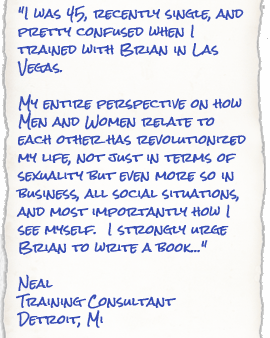 "I was 45, recently single, and
pretty confused when I
trained with Brian in Las
Vegas.
My entire perspective on how
Men and Women relate to
each other has revolutionized
my life, not just in terms of
sexuality but even more so in
business, all social situations,
and most importantly how I
see myself.  I strongly urge
Brian to write a book..."
Neal
Training Consultant
Detroit, Mi